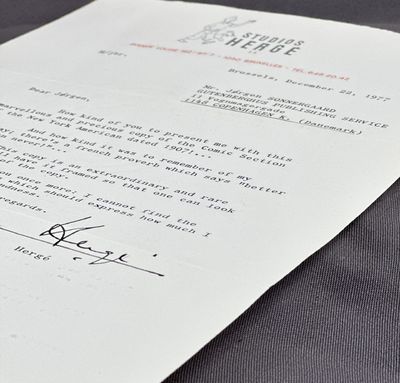 STUDIOS
HERGÉ
AVENUE LOUISE 162 BRUXELLES - TEL.
Brussels, December 22, 1977
Mr. Jørgen SONNERGAARD
GUTENBERGHUS PUBLISHING SERVICE
11 Vognmagergade
1148 COPENHAGEN K. (Danemark)
Dear Jørgen,
How kind of you to present me with this
marvellous and precious copy of the Comic Section
the New York American dated 1907!...
And how kind it was to remember of my
there's a french proverb which says "better
never!"..
This copy is an extraordinary and rare
will have a frame so that one can look
the copy.
you once more; I cannot find the
which should express how much I
kindness.
regards.
Hergé
Hergé